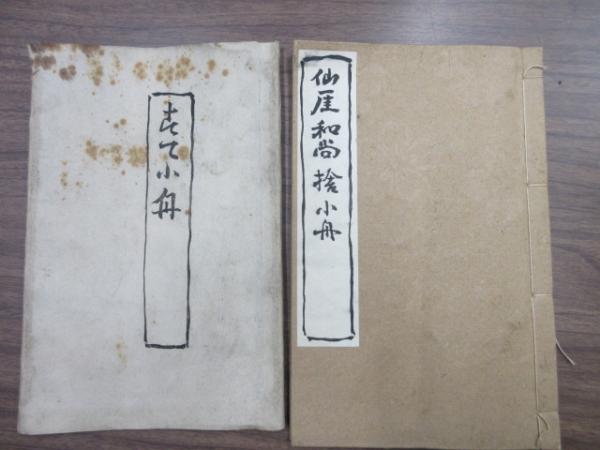 仙厓和尚 捨小舟
すて小舟